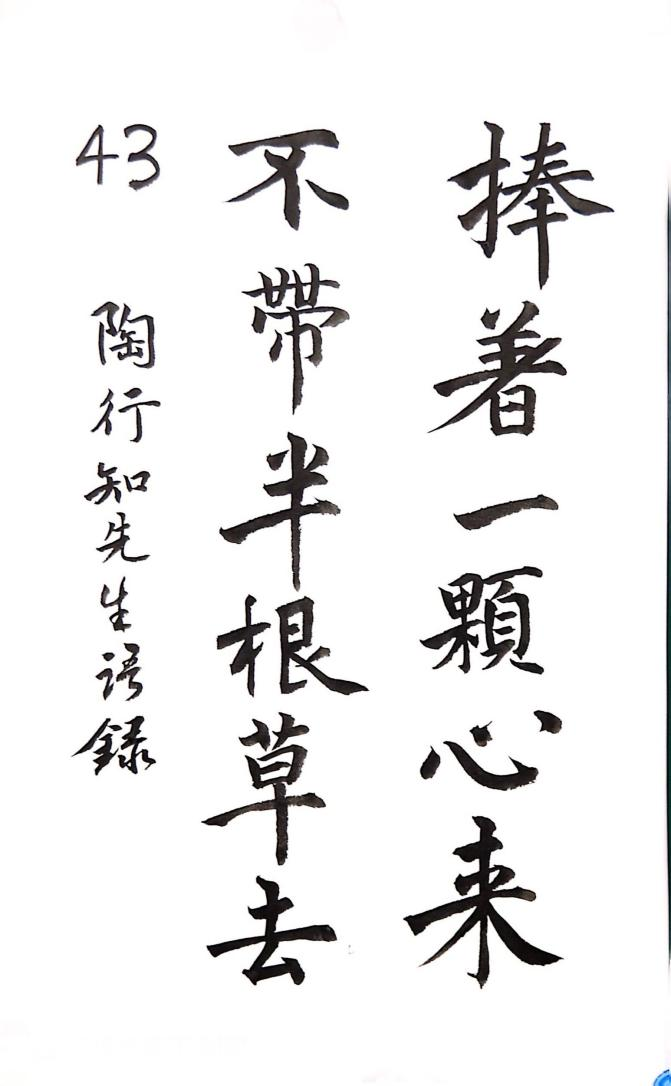 捧着一顆心来
不帶半根草去
43 陶行知先生语録